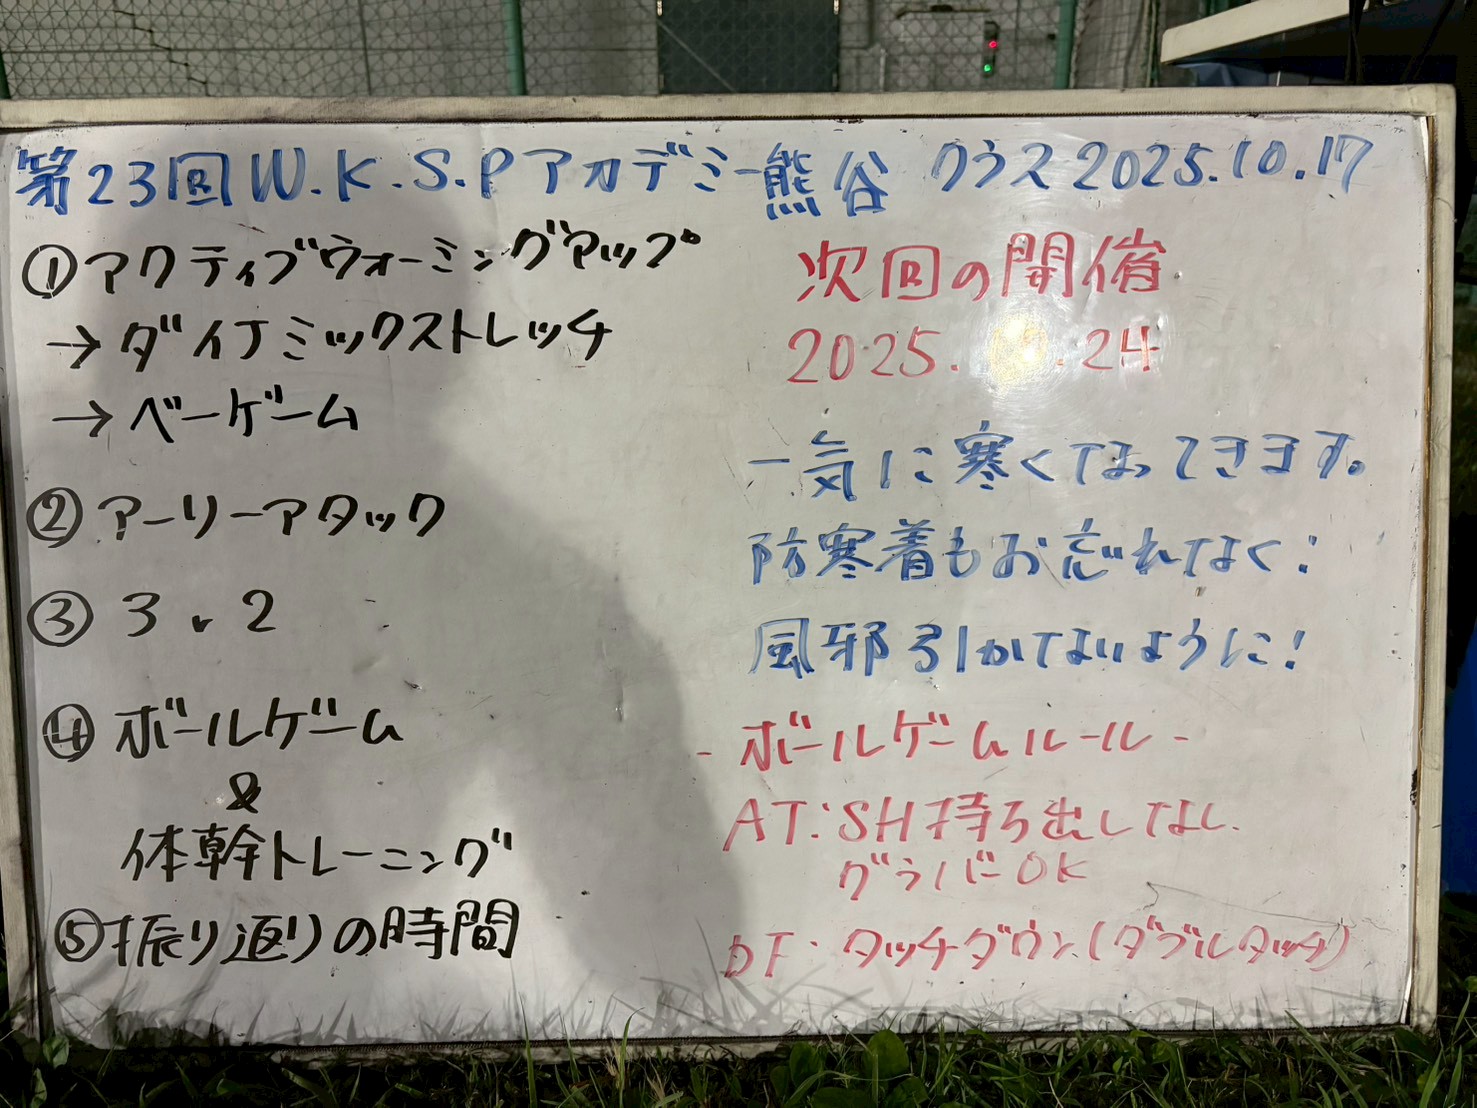 第23回W.K.S.Pアカデミー熊谷 クラス2025.10.17
①アクティブウォーミングアップ
→ダイナミックストレッチ
→ベーゲーム
②アーリーアタック
③ 3 v 2
④ボールゲーム
&
体幹トレーニング
⑤振り返りの時間
次回の開催
2025. .24
一気に寒くなってきます。
防寒着もお忘れなく!
風邪引かないように!
- ボールゲームルール -
AT:SH持ち出しなし
グラバーOK
DF:タッチダウン(ダブルタッチ)